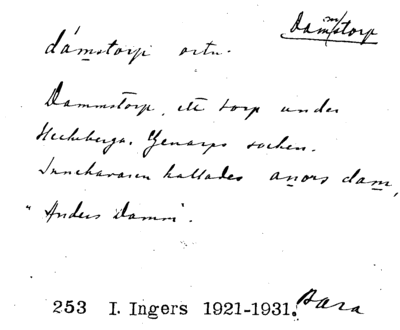 Dammstorp
dámstorp ortn.
Dammstorp, ett torp under
Heckeberga, Genarps socken.
Innehavaren kallades anors dam,
"Anders Damm".
253 I. Ingers 1921-1931. Bara